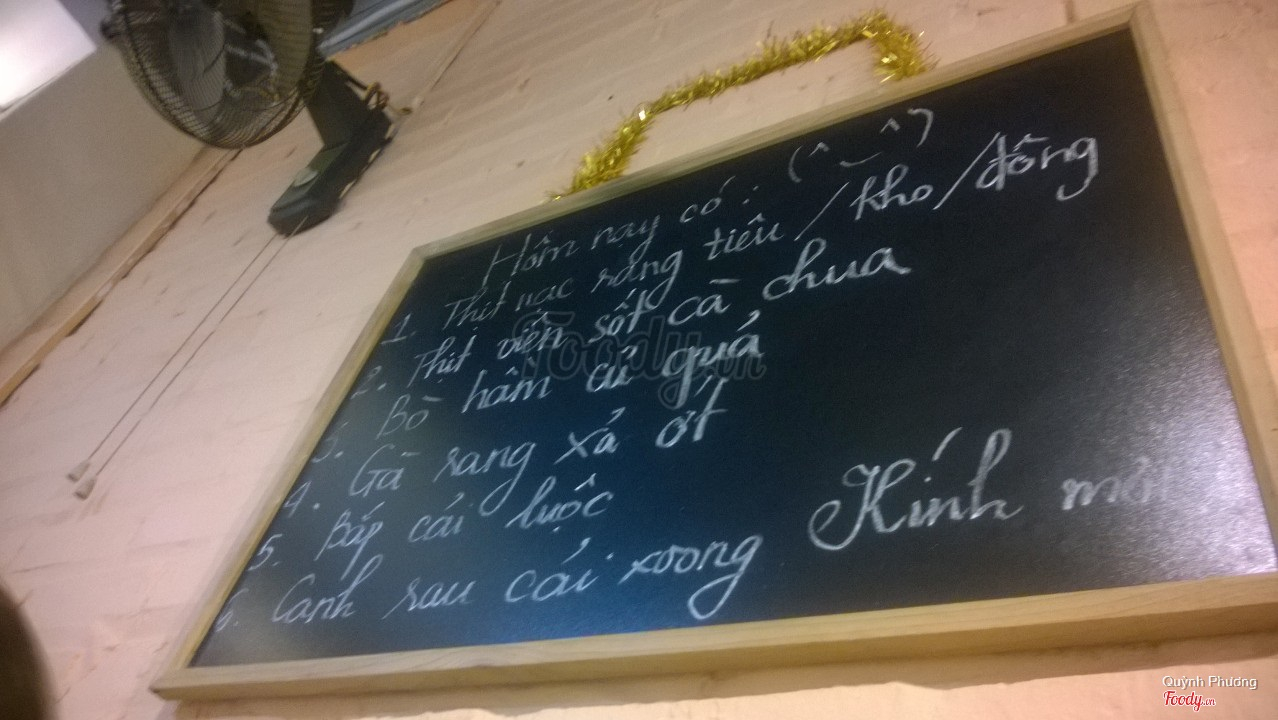 Hôm nay có: (^‿^)
1. Thịt nạc rang tiêu / kho / đông
2. Thịt viên sốt cà chua
3. Bò hầm củ quả
4. Gà rang xả ớt
5. Bắp cải luộc
6. Canh rau cải xoong
Kính mời
Foody.vn
Quỳnh Phương
Foody.vn